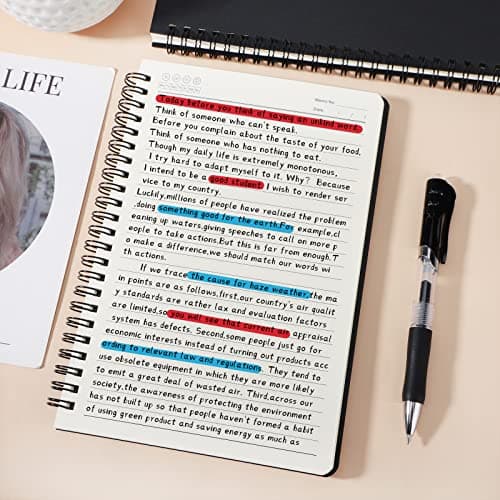 LIFE
Memo No.
Date / /
Today before you think of saying an unkind word,
Think of someone who can't speak.
Before you complain about the taste of your food,
Think of someone who has nothing to eat.
Though my daily life is extremely monotonous,
I try hard to adapt myself to it. Why? Because
I intend to be a good student. I wish to render ser
vice to my country.
Luckily,millions of people have realized the problem
,doing something good for the earth.For example,cl
eaning up waters,giving speeches to call on more p
eople to take actions.But this is far from enough.T
o make a difference,we should match our words wi
th actions.
If we trace the cause for haze weather,the ma
in points are as follows,first,our country's air qualit
y standards are rather lax and evaluation factors
are limited,so you will see that current air appraisal
system has defects. Second,some people just go for
economic interests instead of turning out products acc
ording to relevant law and regulations. They tend to
use obsolete equipment in which they are more likely
to emit a great deal of wasted air. Third,across our
society,the awareness of protecting the environment
has not built up so that people haven't formed a habit
of using green product and saving energy as much as